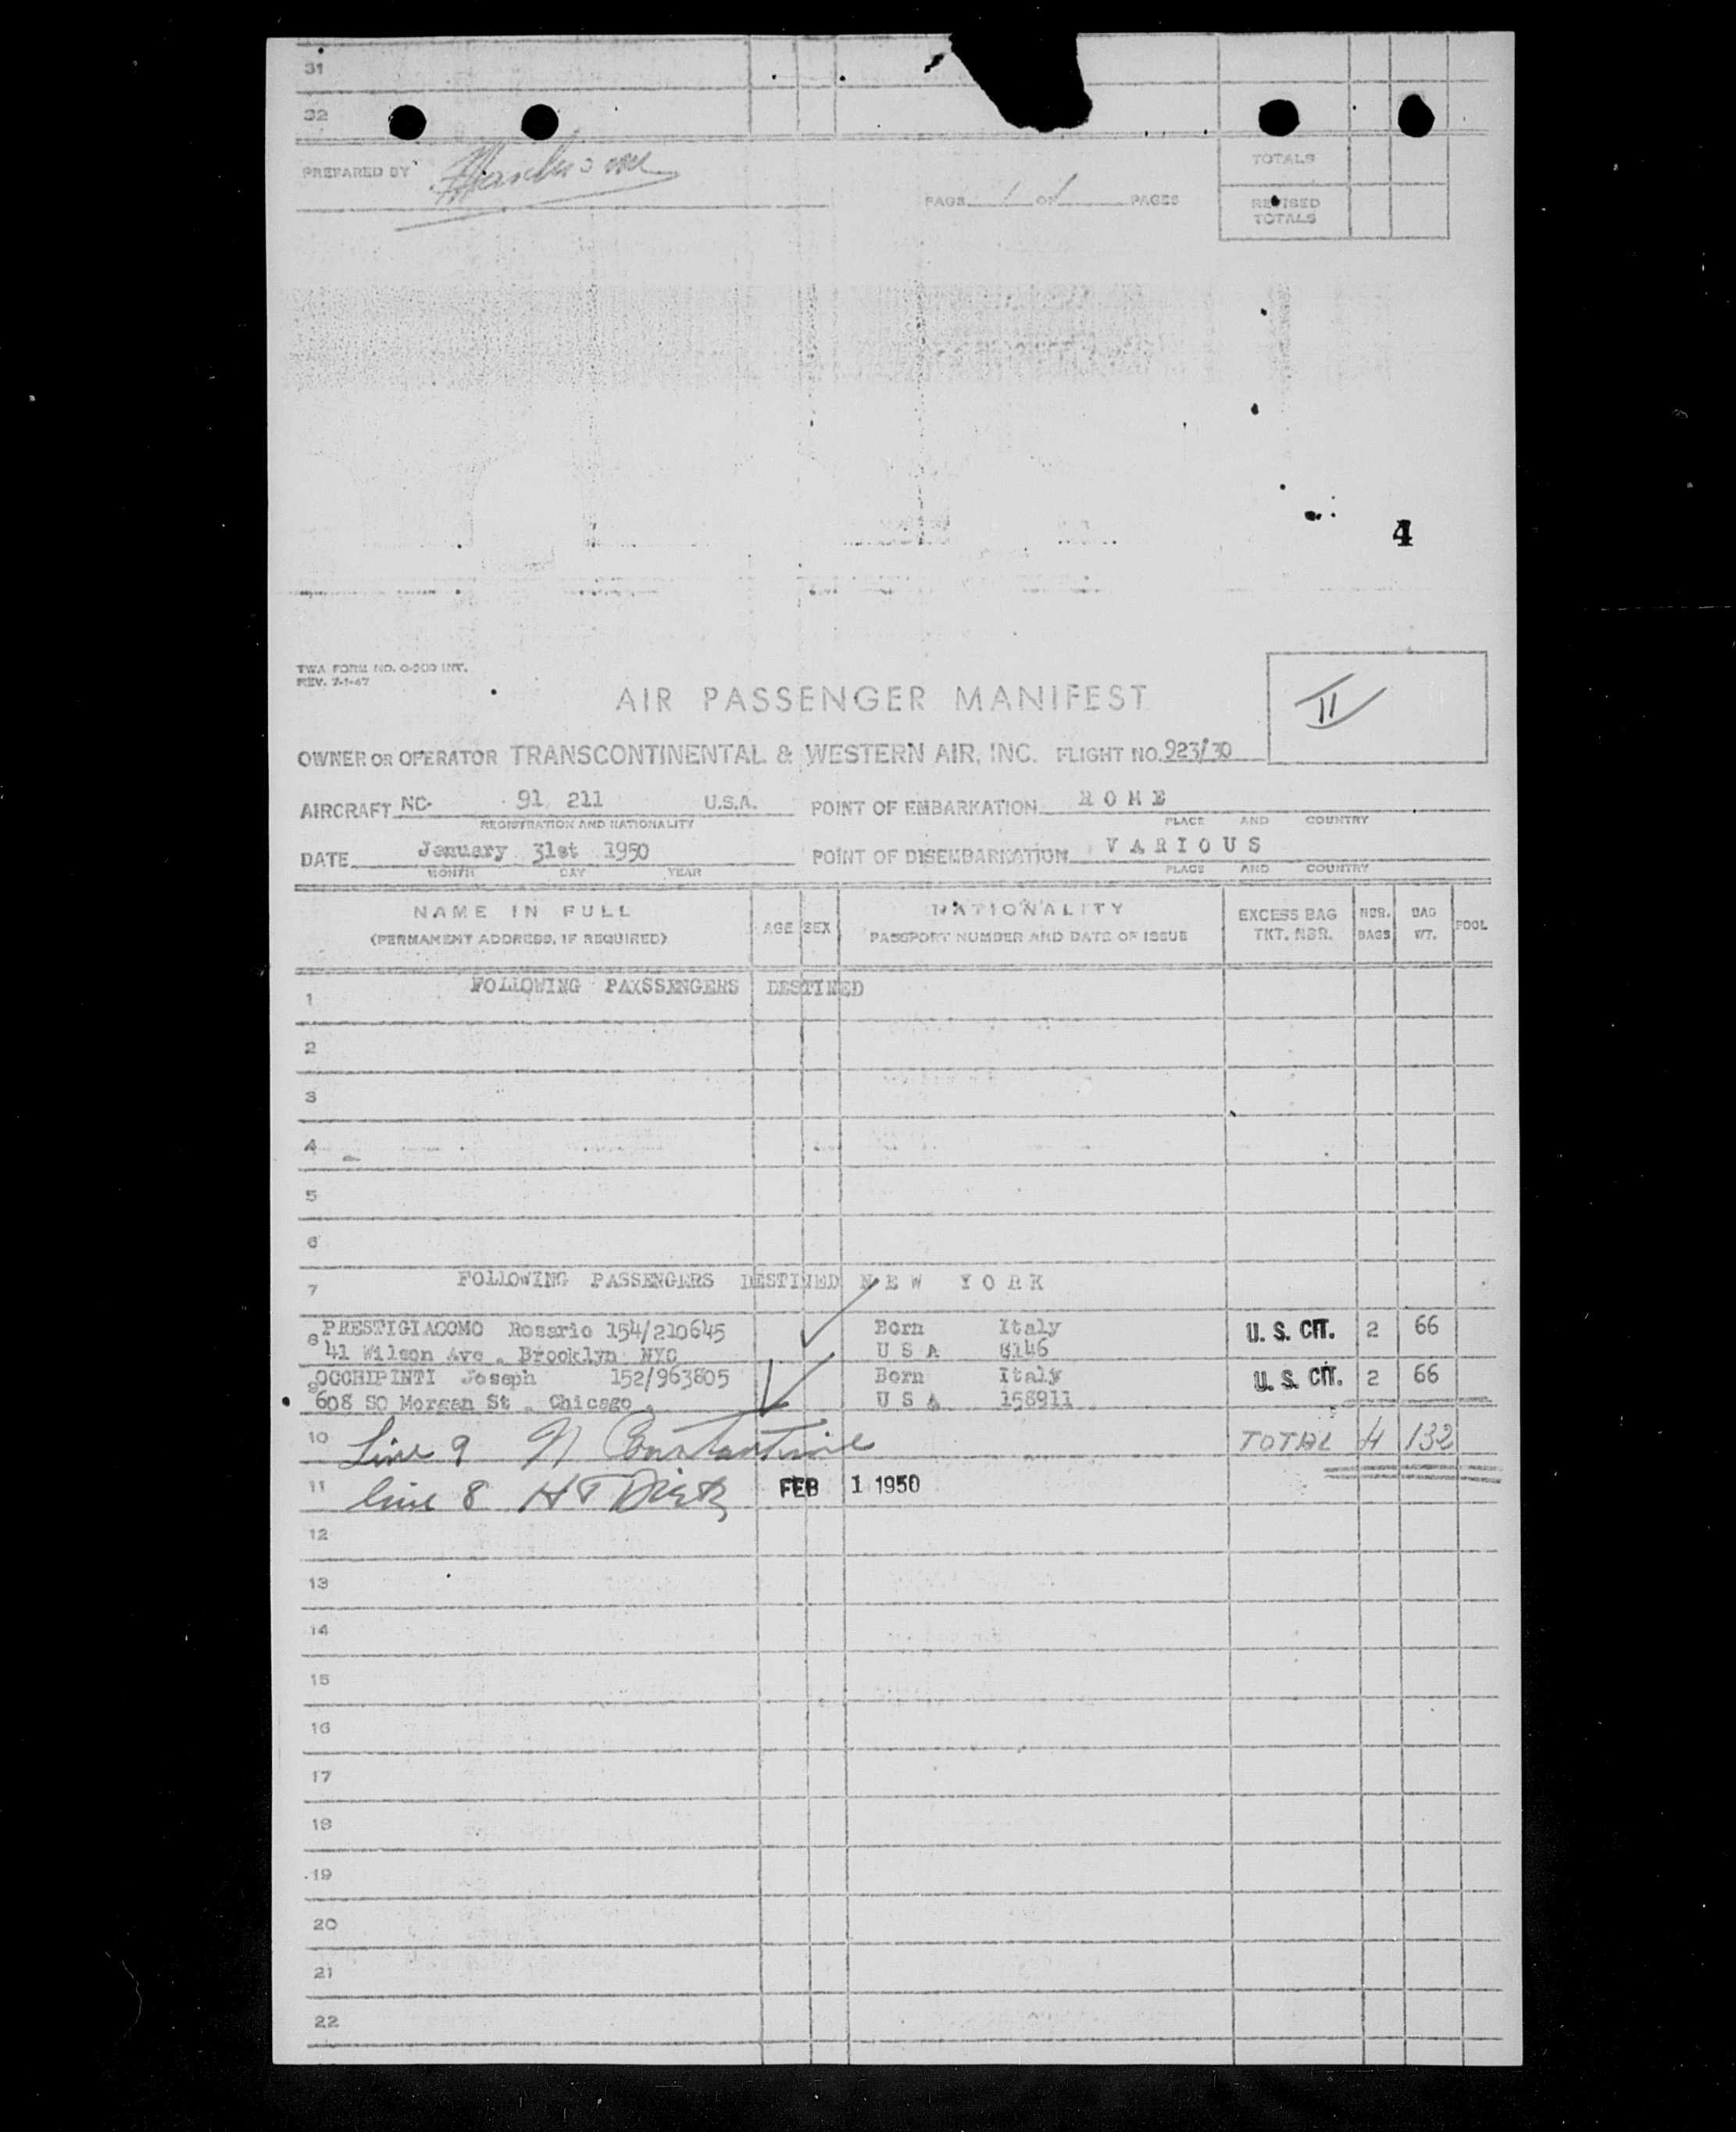 31
32
PREPARED BY
PAGE 1 OF 1 PAGES
TOTALS
REVISED TOTALS
4
TWA FORM NO. O-200 INT.
REV. 7-1-47
II
AIR PASSENGER MANIFEST
OWNER OR OPERATOR TRANSCONTINENTAL & WESTERN AIR, INC. FLIGHT NO. 923/30
AIRCRAFT NC- 91 211 U.S.A. POINT OF EMBARKATION ROME
REGISTRATION AND NATIONALITY PLACE AND COUNTRY
DATE January 31st 1950 POINT OF DISEMBARKATION VARIOUS
MONTH DAY YEAR PLACE AND COUNTRY
NAME IN FULL AGE SEX NATIONALITY EXCESS BAG NBR. BAG POOL
(PERMANENT ADDRESS, IF REQUIRED) PASSPORT NUMBER AND DATE OF ISSUE TKT. NBR. BAGS WT.
1 FOLLOWING PAXSSENGERS DESTINED
2
3
4
5
6
7 FOLLOWING PASSENGERS DESTINED NEW YORK
8 PRESTIGIACOMO Rosario 154/210645 Born Italy U. S. CIT. 2 66
41 Wilson Ave . Brooklyn NYC U S A 8146
9 OCCHIPINTI Joseph 152/963805 Born Italy U. S. CIT. 2 66
608 SO Morgan St . Chicago . U S A 158911
10 Line 9 N Constantine TOTAL 4 132
11 Line 8 H T Dietz FEB 1 1950
12
13
14
15
16
17
18
19
20
21
22